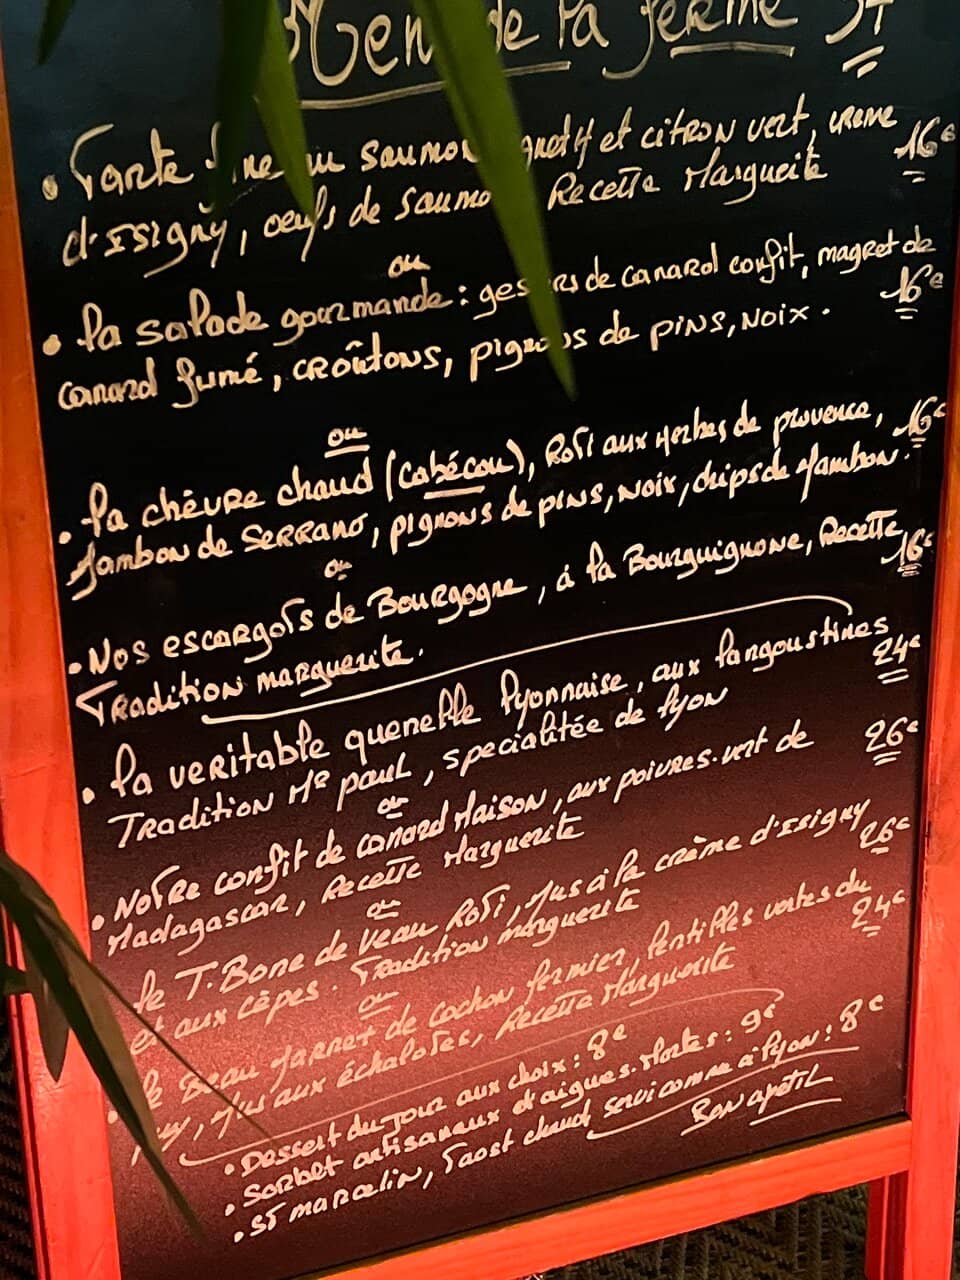 Menu de la ferme
• Tarte fine au saumon, aneth et citron vert, crème 16€
d'Issigny, oeufs de saumon Recette Marguerite
ou
• la salade gourmande : gesiers de canard confit, magret de 16€
canard fumé, croûtons, pignons de pins, noix.
ou
• la chèvre chaud (Cabécou), Roti aux Herbes de provence, 16€
Jambon de Serrano, pignons de pins, noix, chips de Jambon.
ou
• Nos escargots de Bourgogne, à la Bourguignone, Recette 16€
Tradition marguerite.
• la veritable quenelle lyonnaise, aux langoustines 24€
Tradition Me paul, specialitée de lyon
ou
• Notre confit de canard Maison, aux poivres vert de 26€
Madagascar, Recette Marguerite
ou
le T.Bone de veau Roti, Jus à la crème d'Issigny 26€
et aux cêpes. Tradition marguerite
ou
le Beau Jarret de cochon fermier, lentilles vertes du 24€
Puy, Jus aux échalotes, Recette Marguerite
• Dessert du Jour aux choix : 8€
• Sorbet artisanaux d'aigues-Mortes : 9€
• St marcelin, Toast chaud servi comme à lyon : 8€
Bon apetit